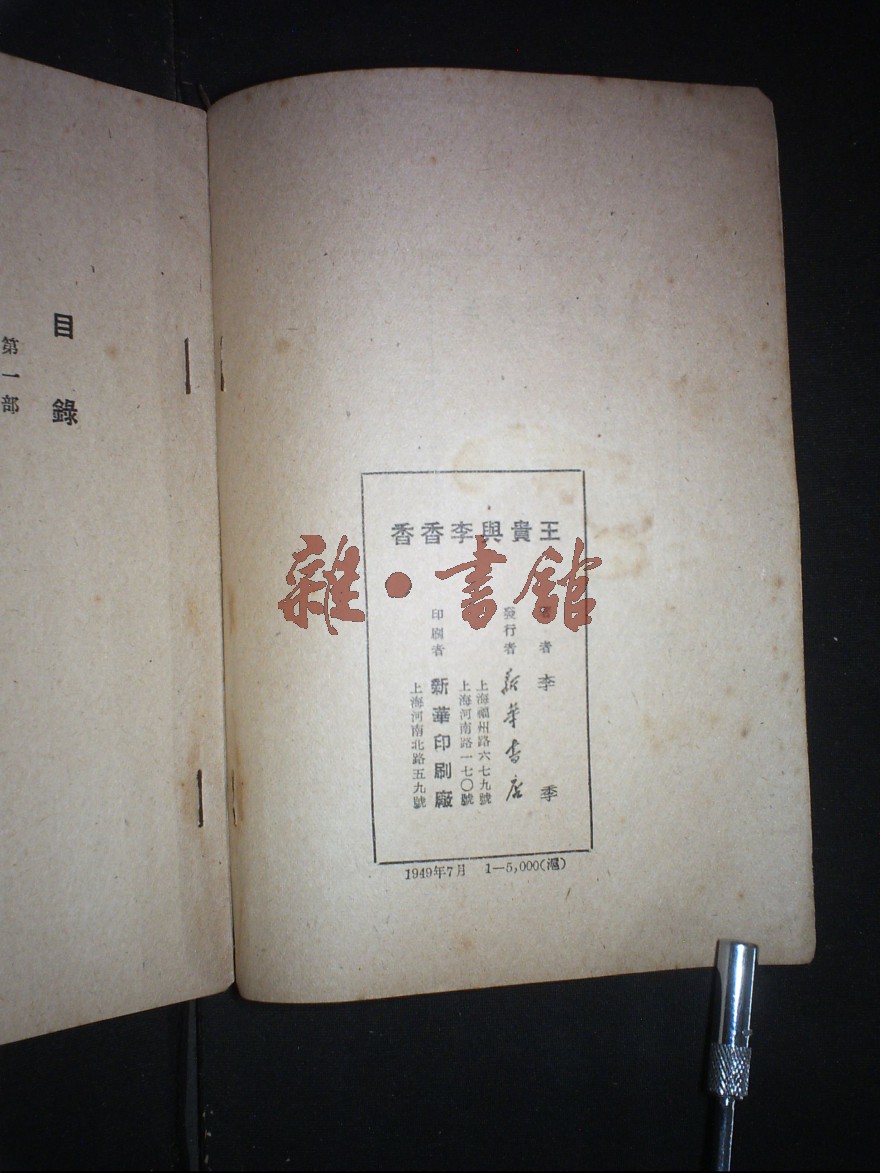 王貴與李香香
著者 李季
發行者 新華書店
上海福州路六七九號
上海河南路一七〇號
印刷者 新華印刷廠
上海河南北路五九號
1949年7月 1—5,000(滬)
目錄
第一部
雜·書館